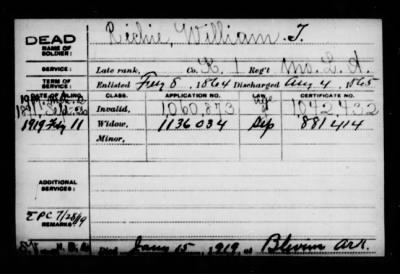 DEAD
NAME OF SOLDIER:
Richie, William T.
SERVICE:
Late rank, Co. K. 1 Reg't Mo. L. A.
TERM OF SERVICE:
Enlisted Fey 8, 1864 Discharged Aug 4, 1865
DATE OF FILING. CLASS. APPLICATION NO. LAW. CERTIFICATE NO.
Invalid, 1060873 age 1042432
1919 Fey 11 Widow, 1136034 Sep 881414
Minor,
ADDITIONAL SERVICES:
EPC 7/28/19
REMARKS:
Died Jany 15, 1919, at Blevin Ark.